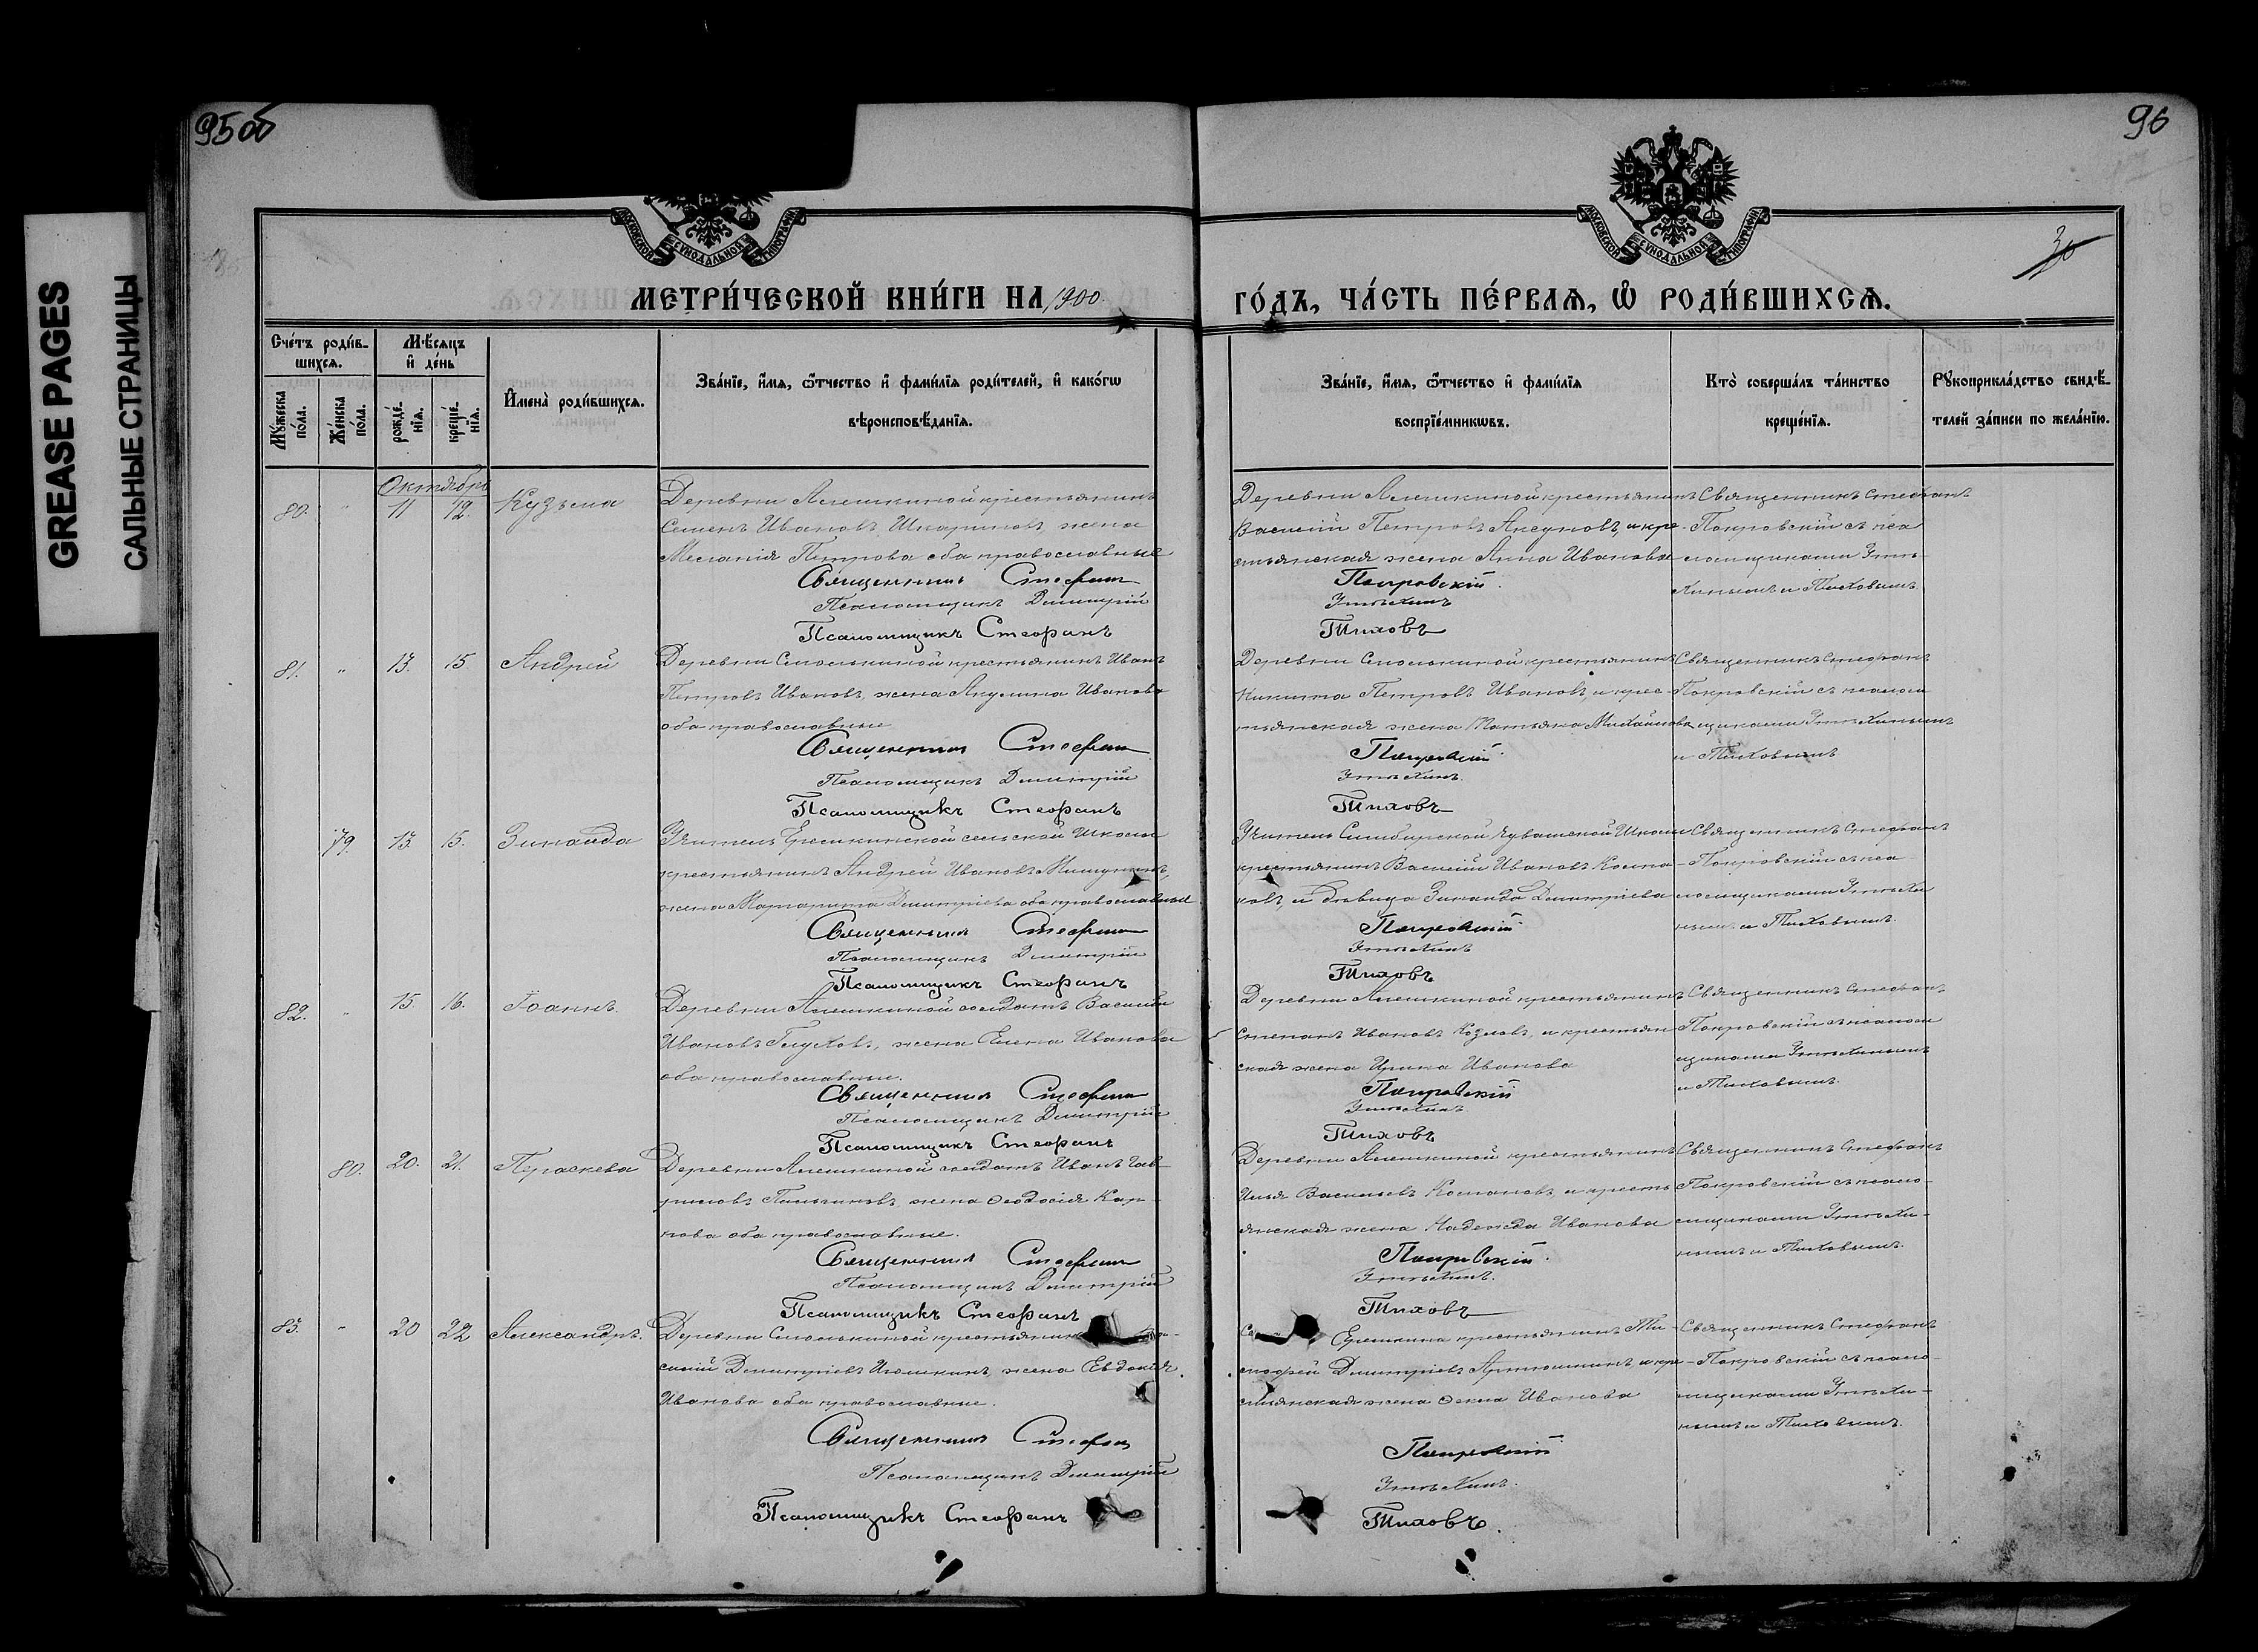 95об
96
GREASE PAGES
САЛЬНЫЕ СТРАНИЦЫ
МОСКОВСКОЙ СѴНОДАЛЬНОЙ ТИПОГРАФІИ
МОСКОВСКОЙ СѴНОДАЛЬНОЙ ТИПОГРАФІИ
30
МЕТРИ́ЧЕСКОЙ КНИ́ГИ НА 1900
ГО́ДЪ, ЧА́СТЬ ПЕ́РВАѦ, Ѽ РОДИ́ВШИХСѦ.
Сче́тъ роди́в-
шихсѧ.
Мѣ́сѧцъ
и҆ де́нь
Мꙋ́жеска по́ла.
Же́нска по́ла.
рожде́-нїѧ.
креще́-нїѧ.
И҆мена̀ роди́вшихсѧ.
Зва́нїе, и҆́мѧ, ѿ́чество и҆ фами́лїѧ роди́телей, и҆ како́гѡ
вѣроисповѣ́данїѧ.
Зва́нїе, и҆́мѧ, ѿ́чество и҆ фами́лїѧ
воспрїе́мникѡвъ.
Кто̀ соверша́лъ та́инство
креще́нїѧ.
Рꙋкоприкла́дство свидѣ́-
телей за́писи по жела́нїю.
Октябрь
80. " 11 12. Кузьма
Деревни Алешкиной крестьянинъ
Семенъ Ивановъ, жена
Меланія Петрова оба православные
Священникъ Стефанъ
Псаломщикъ Димитрій
Псаломщикъ Стефанъ
Деревни Алешкиной крестьянинъ
Василій Петровъ Аксуновъ, и кре-
стьянская жена Анна Иванова
Покровскій
Утѣхинъ
Тиховъ
Священникъ Стефанъ
Покровскій съ пса
ломщиками Утѣ-
хинымъ и Тиховымъ.
81. " 13. 15 Андрей
Деревни Смолькиной крестьянинъ Иванъ
Петровъ Ивановъ, жена Акулина Иванова
оба православные
Священникъ Стефанъ
Псаломщикъ Димитрій
Псаломщикъ Стефанъ
Деревни Смолькиной крестьянинъ
Никита Петровъ Ивановъ, и крес-
тьянская жена Татьяна Михайлова
Покровскій
Утѣхинъ.
Тиховъ
Священникъ Стефанъ
Покровскій съ псалом
щиками Утѣхинымъ
и Тиховымъ
79. 13. 15. Зинаида
Учитель Ерешкинской сельской Школы
крестьянинъ Андрей Ивановъ
жена Маргарита Димитріева оба православные
Священникъ Стефанъ
Псаломщикъ Димитрій
Псаломщикъ Стефанъ
Учитель Симбирской Чувашской Школы
крестьянинъ Василій Ивановъ
и дѣвица Зинаида Димитріева
Покровскій
Утѣхинъ
Тиховъ
Священникъ Стефанъ
Покровскій съ пса
ломщиками Утѣхи
нымъ и Тиховымъ.
82. " 15. 16. Іоаннъ.
Деревни Алешкиной солдатъ Василій
Ивановъ Глуховъ, жена Елена Иванова
оба православные.
Священникъ Стефанъ
Псаломщикъ Димитрій
Псаломщикъ Стефанъ
Деревни Алешкиной крестьянинъ
Степанъ Ивановъ Козловъ, и крестьян
ская жена Ирина Иванова
Покровскій
Утѣхинъ
Тиховъ
Священникъ Стефанъ
Покровскій съ псалом
щиками Утѣхинымъ
и Тиховымъ.
80. 20. 21. Параскева
Деревни Алешкиной солдатъ Иванъ Гав-
риловъ, жена Ѳеодосія Кар-
пова оба православные.
Священникъ Стефанъ
Псаломщикъ Димитрій
Псаломщикъ Стефанъ
Деревни Алешкиной крестьянинъ
Илья Васильевъ, и кресть
янская жена Надежда Иванова
Покровскій
Утѣхинъ.
Тиховъ
Священникъ Стефанъ
Покровскій съ псало-
мщиками Утѣхи-
нымъ и Тиховымъ.
83. " 20 22 Александръ.
Деревни Смолькиной крестьянинъ
Димитріевъ Илюшкинъ, жена Евдокія
Иванова оба православные.
Священникъ Стефанъ
Псаломщикъ Димитрій
Псаломщикъ Стефанъ
Ерешкина крестьянинъ Ти-
мофей Димитріевъ Артюшкинъ, и кре-
стьянская жена Ѳекла Иванова
Покровскій
Утѣхинъ.
Тиховъ.
Священникъ Стефанъ
Покровскій съ псало-
мщиками Утѣхи-
нымъ и Тиховымъ.